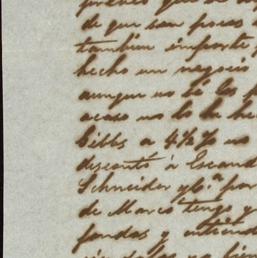 de que son pocas
tambien importe
hecho un negocio
aunque no se los
acaso no lo ha he
Gibbs a 4½% no
descontó á Escand
Schneider y Cª. por
de Marzo tengo y
fondos y entiend